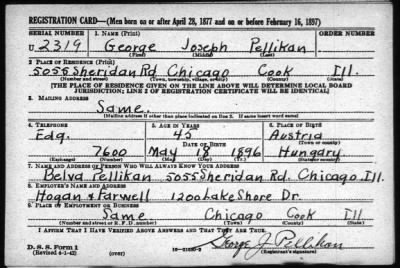 REGISTRATION CARD—(Men born on or after April 28, 1877 and on or before February 16, 1897)
SERIAL NUMBER 1. NAME (Print) ORDER NUMBER
U 2319 George Joseph Pellikan
(First) (Middle) (Last)
2. PLACE OF RESIDENCE (Print)
5055 Sheridan Rd. Chicago Cook Ill.
(Number and street) (Town, township, village, or city) (County) (State)
[THE PLACE OF RESIDENCE GIVEN ON THE LINE ABOVE WILL DETERMINE LOCAL BOARD
JURISDICTION; LINE 2 OF REGISTRATION CERTIFICATE WILL BE IDENTICAL]
3. MAILING ADDRESS
Same.
[Mailing address if other than place indicated on line 2. If same insert word same]
4. TELEPHONE 5. AGE IN YEARS 6. PLACE OF BIRTH
Edg. 45 Austria
DATE OF BIRTH (Town or county)
7600 May 18 1896 Hungary
(Exchange) (Number) (Mo.) (Day) (Yr.) (State or country)
7. NAME AND ADDRESS OF PERSON WHO WILL ALWAYS KNOW YOUR ADDRESS
Belva Pellikan 5055 Sheridan Rd. Chicago, Ill.
8. EMPLOYER'S NAME AND ADDRESS
Hogan & Farwell 1200 Lake Shore Dr.
9. PLACE OF EMPLOYMENT OR BUSINESS
Same Chicago Cook Ill
(Number and street or R. F. D. number) (Town) (County) (State)
I AFFIRM THAT I HAVE VERIFIED ABOVE ANSWERS AND THAT THEY ARE TRUE.
D. S. S. Form 1 George J. Pellikan
(Revised 4-1-42) (over) (Registrant's signature)